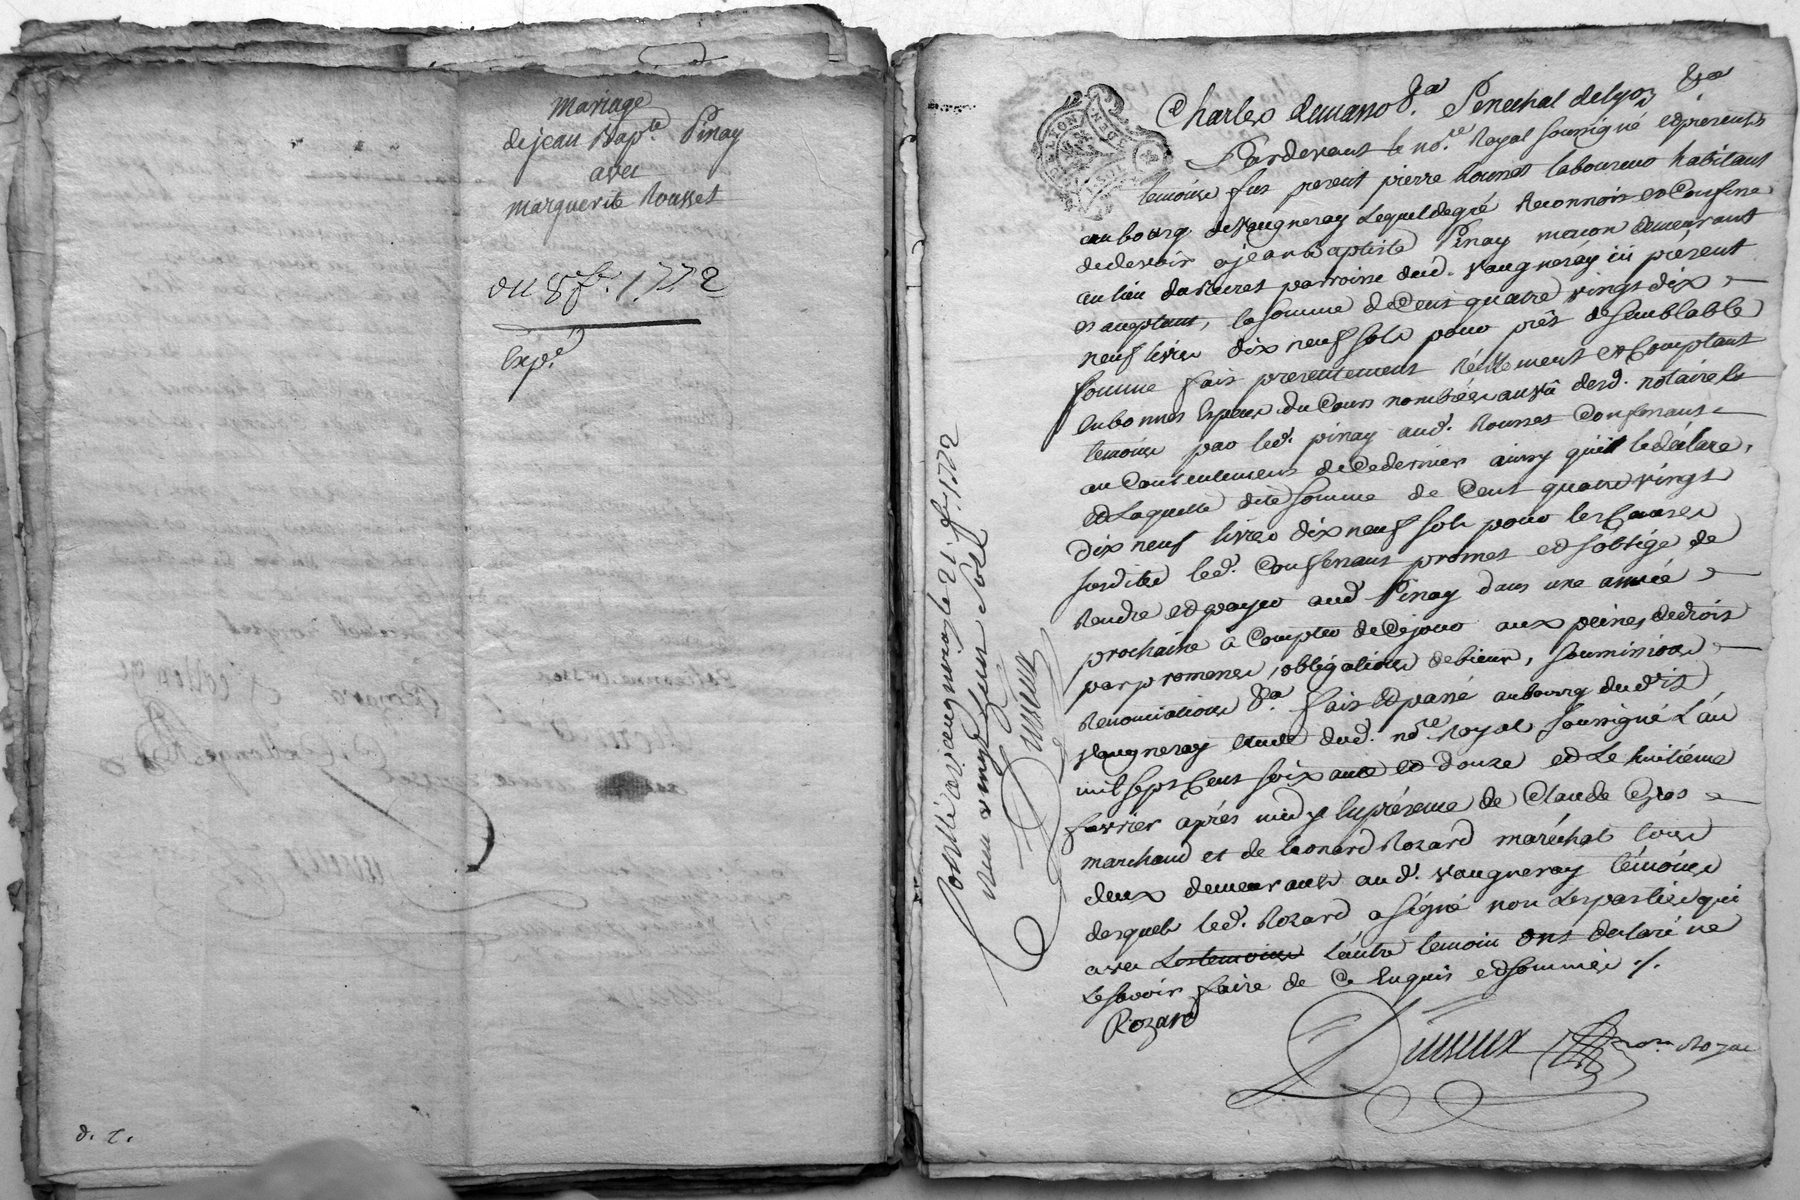 Mariage
de jean Bap.te Pinay
avec
marguerite Rousset
du 8 f.r 1772
Exp.é
d. t.
Charles demasso &.a Senechal de lyon
Pardevant le no.re Royal soussigné et presents
temoins fut present pierre laboureur habitant
au bourg de Vaugneray Lequel de gré Reconnoit et Confesse
de devoir a jean Baptiste Pinay macon demeurant
au lieu du parroisse dud. Vaugneray ici présent
et aceptant, la somme de Cent quatre vingt dix
neuf livres dix neuf sols pour prêt de semblable
somme fait presentement Réellement et Comptant
en bonnes Especes du Cours nombrées au vû desd. notaire et
temoins par led. pinay aud. Confessant
au Contentement de Ce dernier ainsy qu'il le déclare,
et Laquelle dite somme de Cent quatre vingt
dix neuf livres dix neuf sols pour les Causes
susdites led. Confessant promet et s'oblige de
Rendre et payer aud. Pinay dans une année
prochaine à Compter de Ce jour aux peines de droit
par promesses, obligations de biens, soumissions
Renonciations &.a fait et passé au bourg dudit
Vaugneray Etude dud. no.re Royal soussigné L'an
mil sept Cent soixante et douze et Le huitième
fevrier après midy En présence de Claude Gros
marchand et de Leonard Rozard maréchal tous
deux demeurants aud. Vaugneray témoins
desquels led. Rozard a signé non Les parties qui
avec Les temoins L'autre temoin ont declaré ne
Le savoir faire de Ce Enquis et sommés ./.
Rozard
no.re Royal
Controllé à Vaugneray le 21 f.r 1772
Reçu vingt un sols